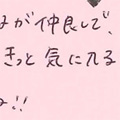 が仲良しで、
きっと気に入る
!!